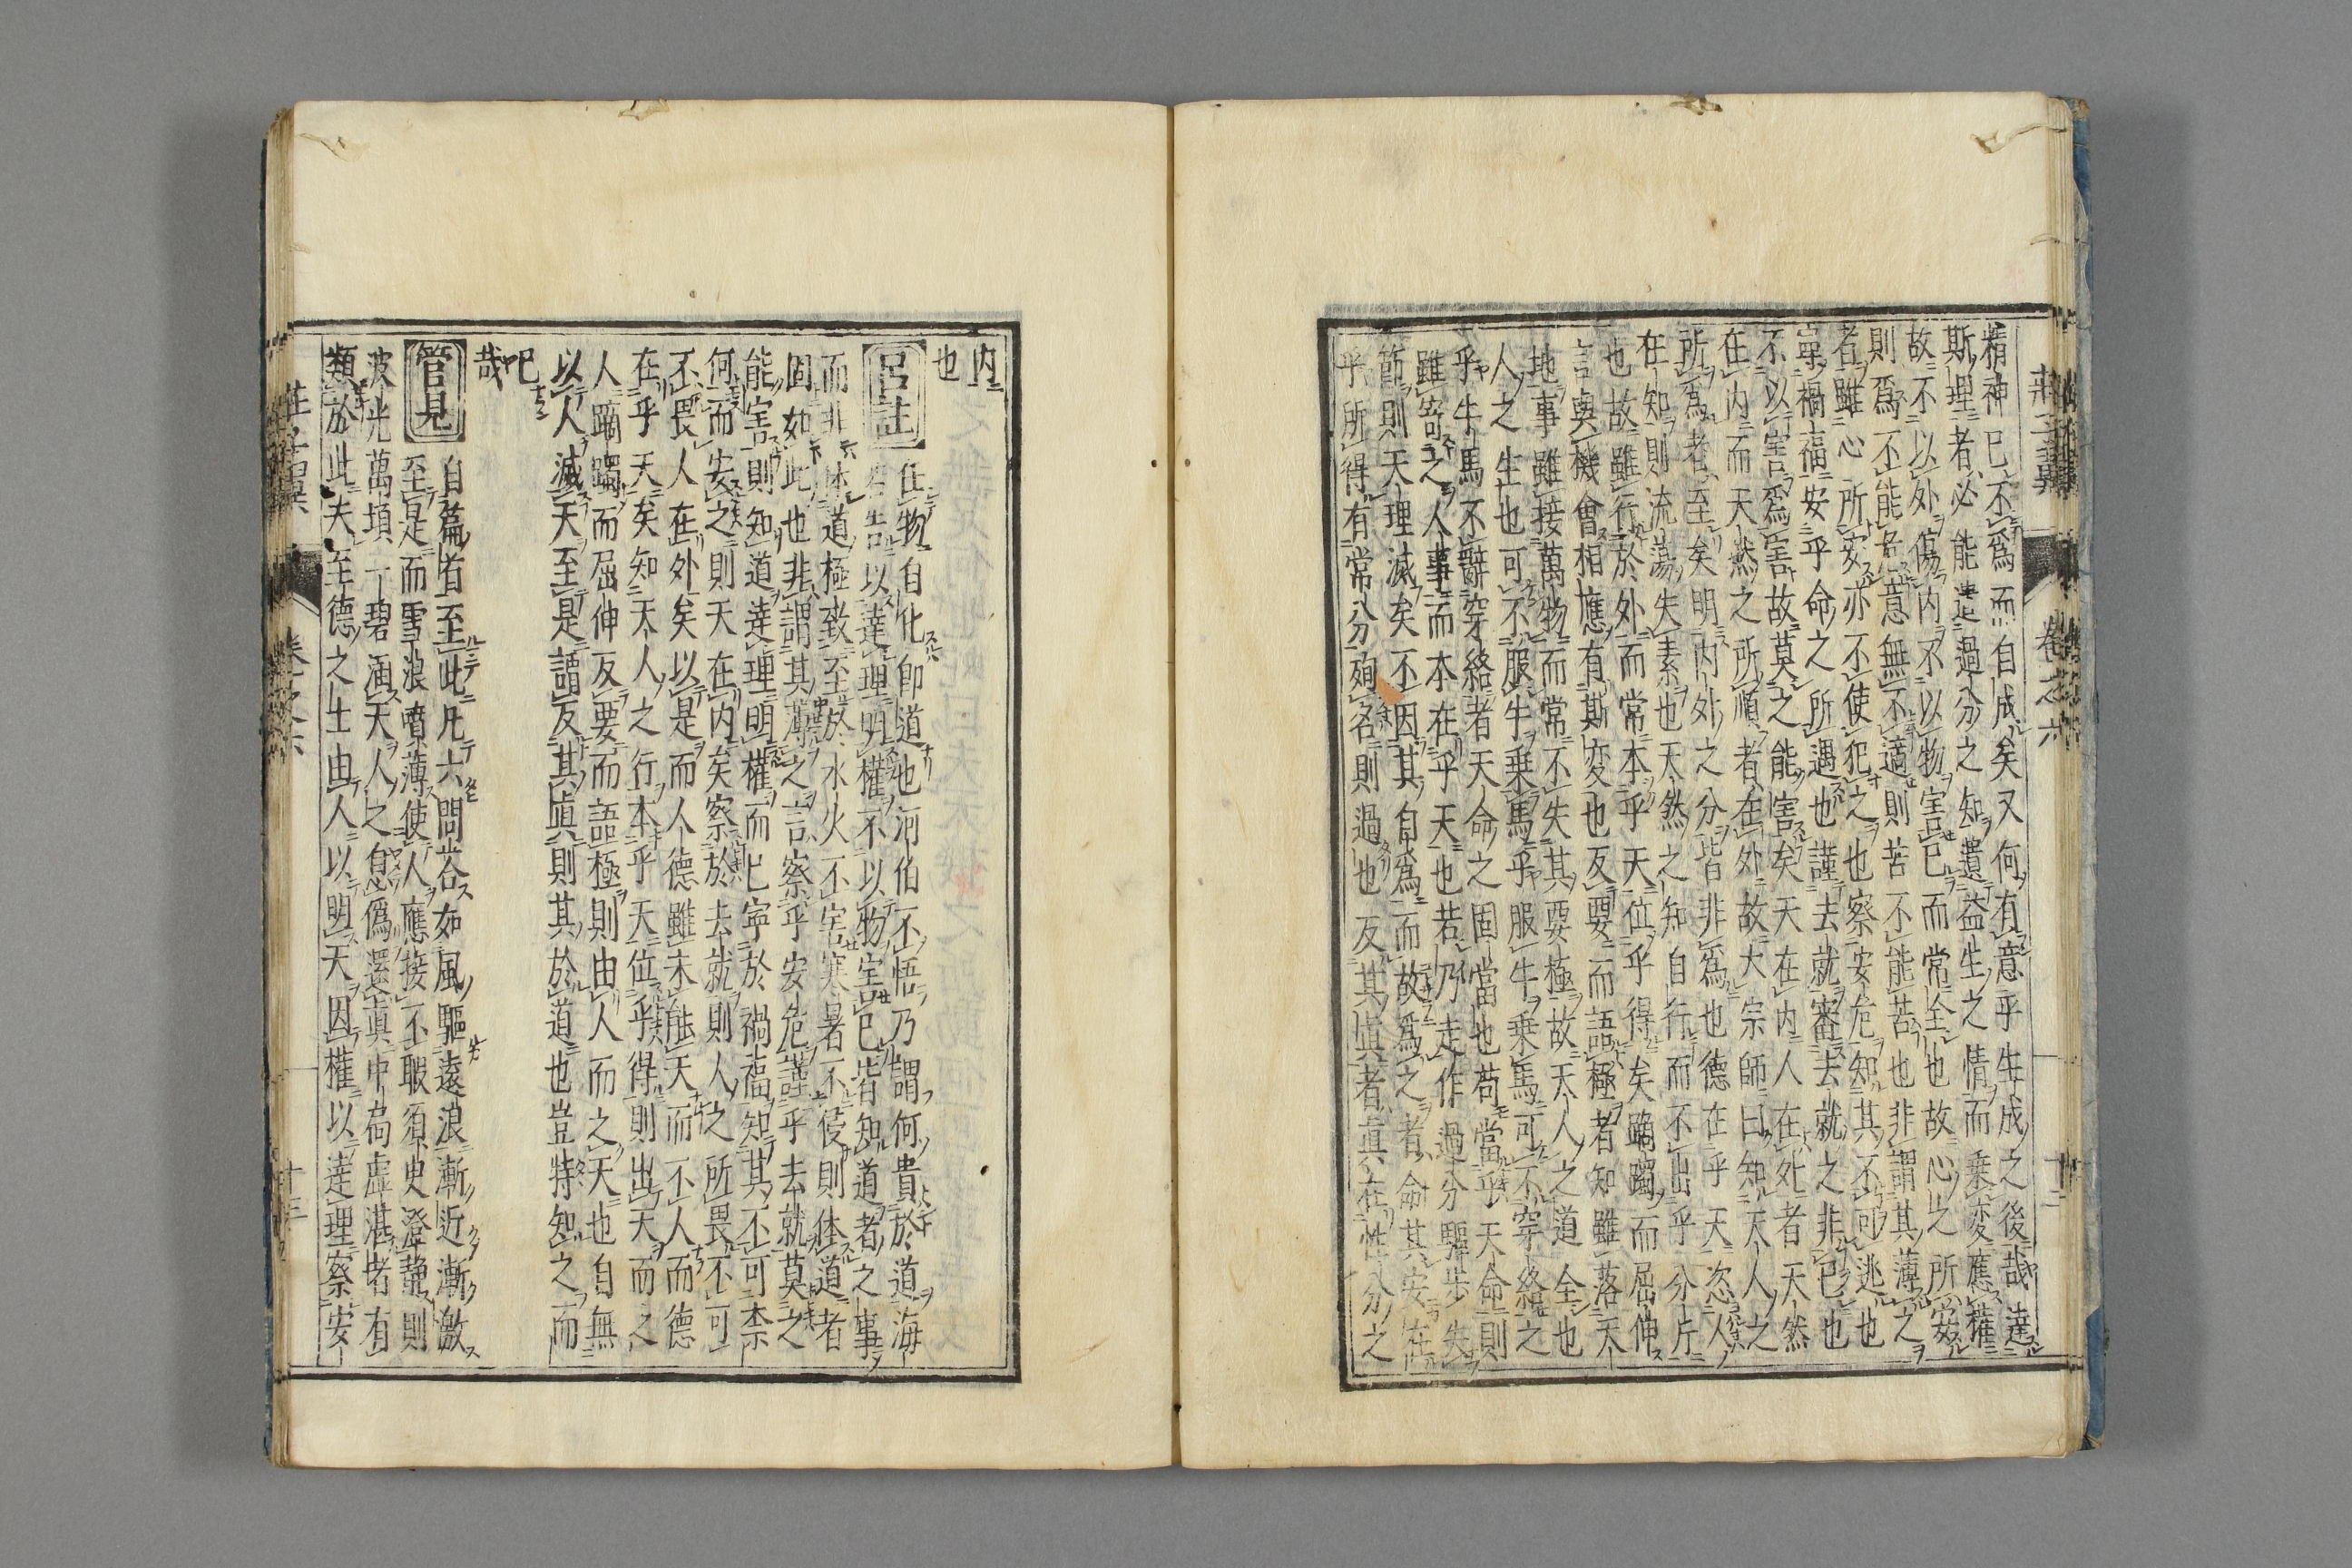 莊子翼 卷之六
精神已不爲而自成矣又何有意乎生成之後哉達
斯理者必能遣過分之知遺益生之情而乗変應權
故不以外傷内不以物害己而常全也故心之所安
則爲不能危意無不適則苦不能苦也非謂其薄之
者雖心所安亦不使犯之也察安危知其不可逃也
寧禍福安乎命之所遇也謹去就審去就之非己也
不以害爲害故莫之能害矣天在内人在外者天然
在内而天然之所順者在外故大宗師曰知天人之
所爲者至矣明内外之分皆非爲也德在乎天恣人
在知則流蕩失素也天然之知自行而不出乎分斤
也故雖行於外而常本乎天位乎得矣蹢躅而屈伸
言與機會相應有斯変也反要而語極者知雖落天
地事雖接萬物而常不失其要極故天人之道全也
人之生也可不服牛乗馬乎服牛乗馬可不穿絡之
乎牛馬不辭穿絡者天命之固當也苟當乎天命則
雖寄之人事而本在乎天也若乃走作過分驅步失
節則天理滅矣不因其自爲而故爲之者命其安在
乎所得有常分殉名則過也反其眞者眞在性分之
内
也
呂註 任物自化即道也河伯不悟乃謂何貴於道海
若告以達理明權不以物害己皆知道者之事
而非体道極致至於水火不害寒暑不侵則体道者
固如此也非謂其薄之言察乎安危謹乎去就莫之
能害則知道達理明權而已寧於禍福知其不可柰
何而安之則天在内矣察於去就則人之所畏不可
不畏人在外矣以是而人德雖未能天而不人而德
在乎天矣知天人之行本乎天位乎得則出天而之
人蹢躅而屈伸反要而語極則由人而之天也自無
以人滅天至是謂反其眞則其於道也豈特知之而
已
哉
管見 自篇首至此凡六問荅如風驅遠浪漸近漸激
至是而雪浪噴薄使人應接不暇須臾澄靜則
波光萬頃一碧涵天人之息僞還眞中扃虚湛者有
類於此夫至德之士由人以明天因權以達理察安
莊子翼 卷之六 十三